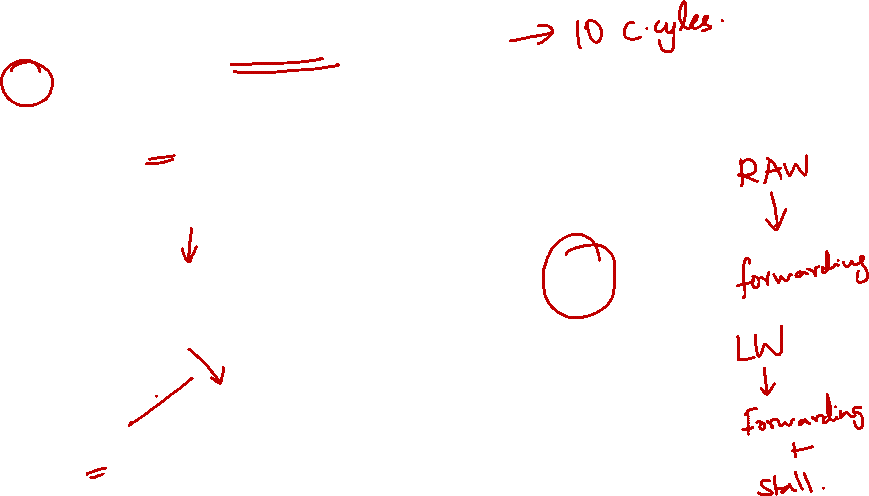 → 10 c.cyles.
RAW
↓
forwarding
LW
↓
forwarding
+
stall.